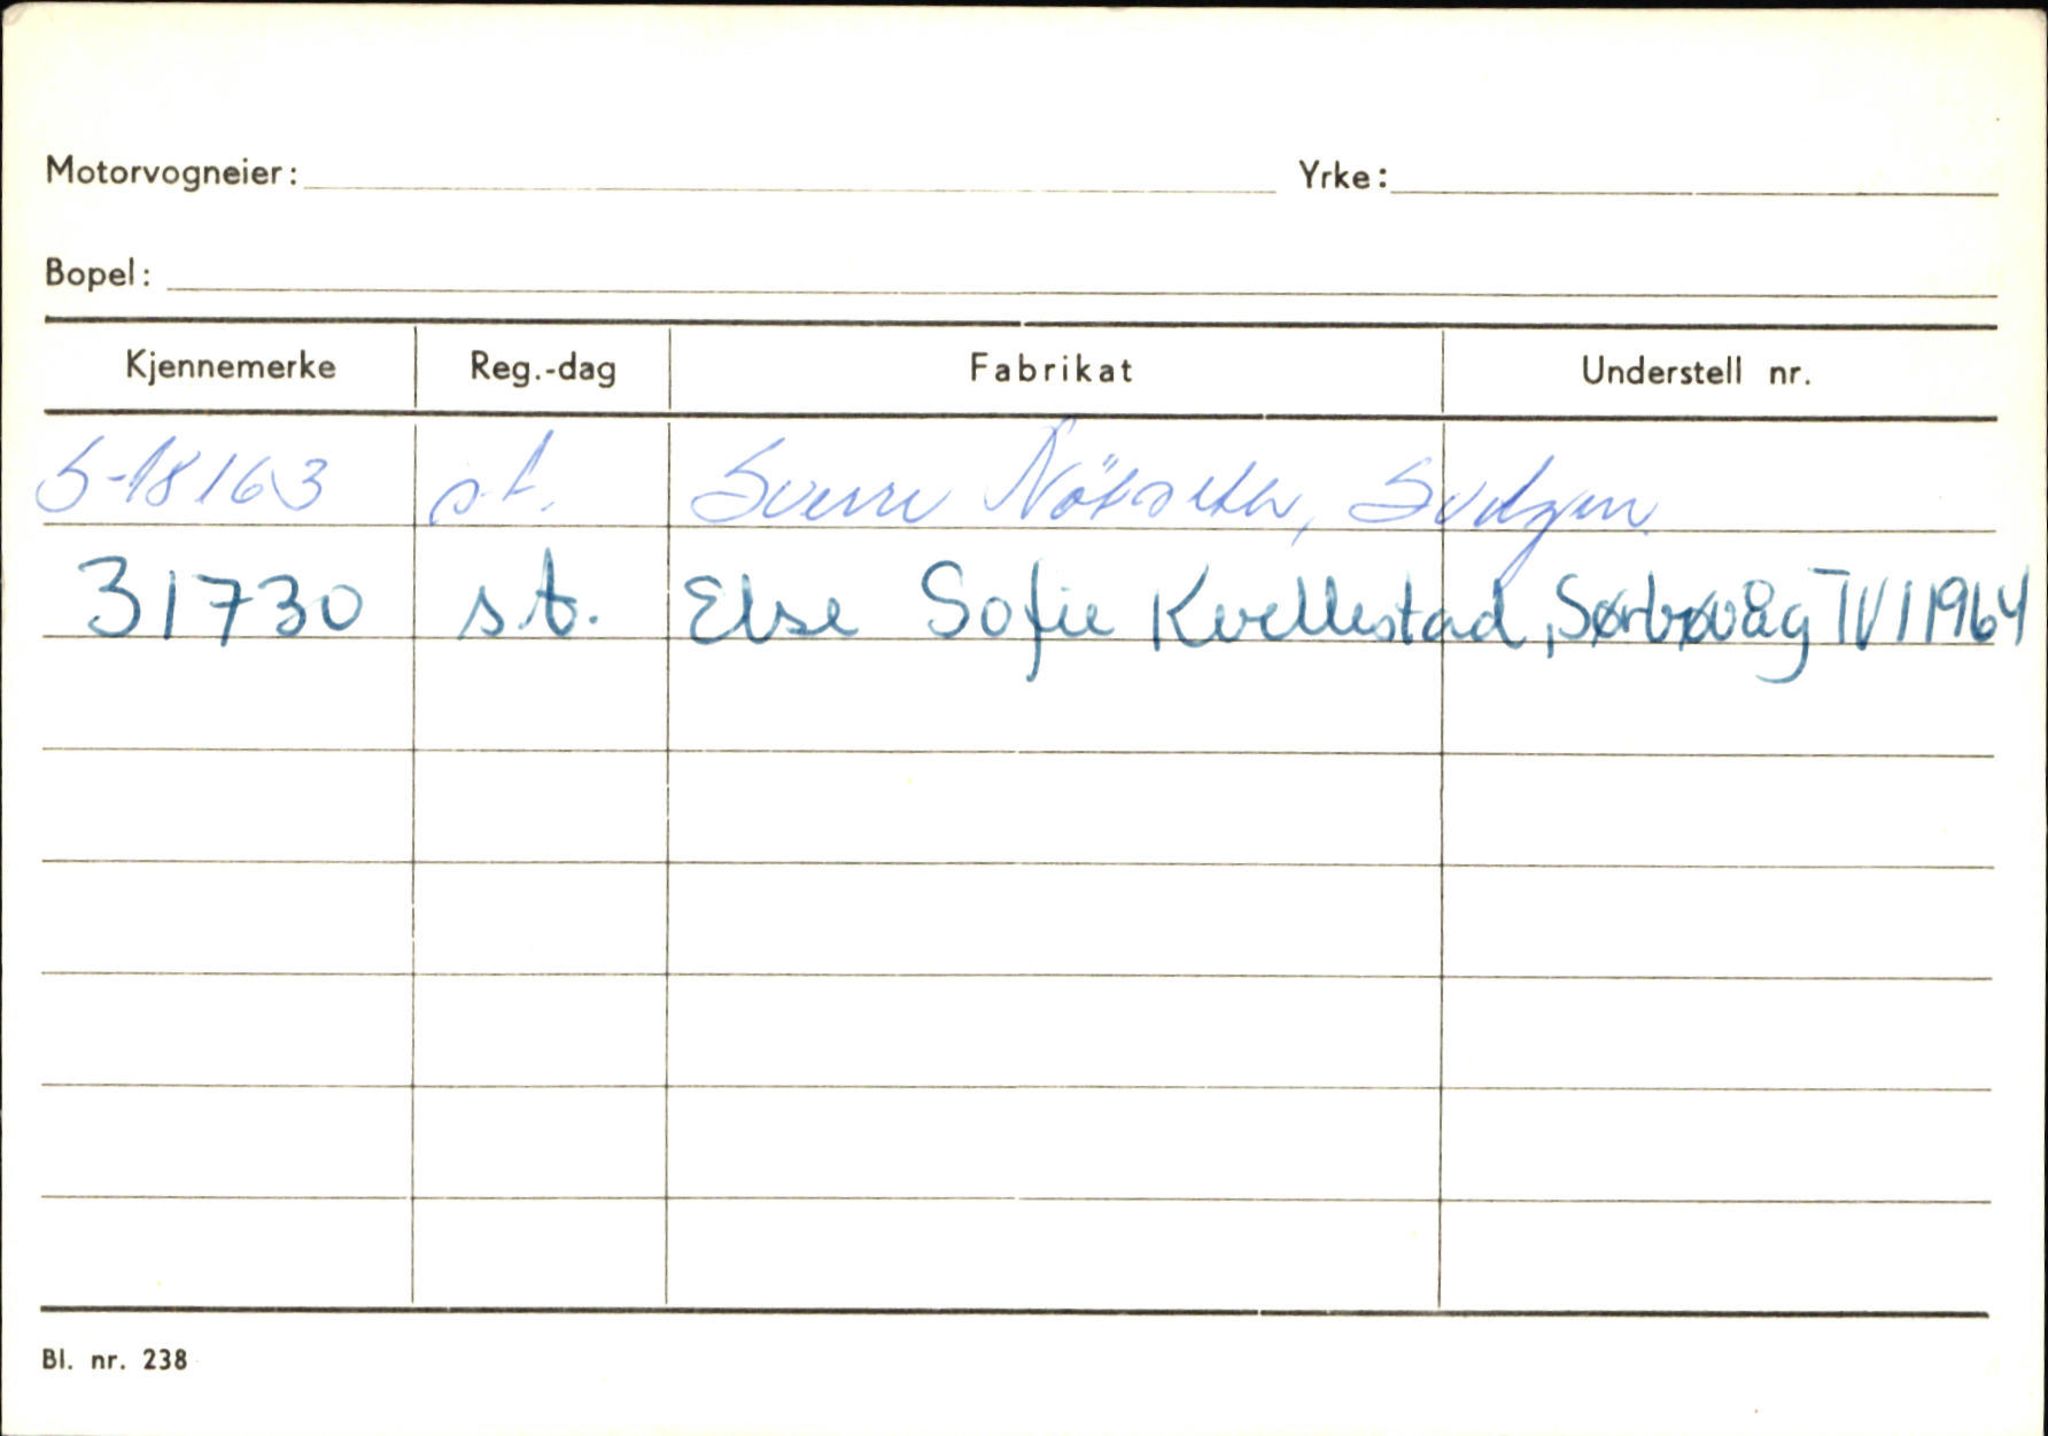 Motorvogneier: Yrke:
Bopel:
Kjennemerke Reg.-dag Fabrikat Understell nr.
S-18163 st. Sverre Nötseth, Svelgen
31730 st. Else Sofie Kvellestad, Sørbøvåg IV 1 1964
Bl. nr. 238